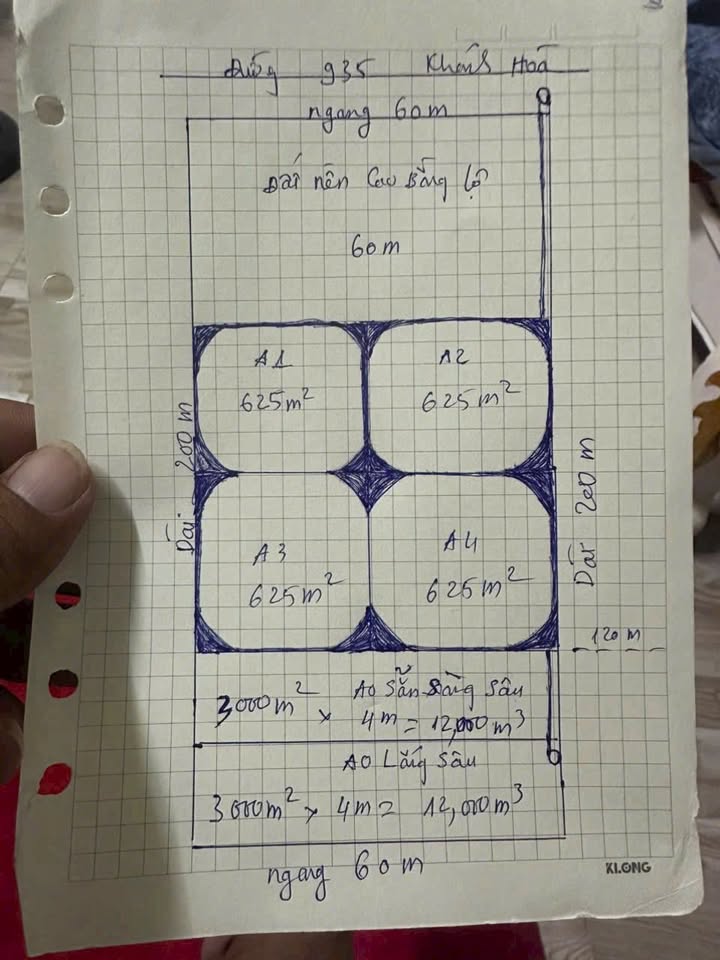 Đường 935 Khánh Hoà
ngang 60m
Đất nền Cao Bằng lộ
60m
A1
625m²
A2
625m²
Dài 200m
Dài 200m
A3
625m²
A4
625m²
120m
Ao Sẵn Sàng Sâu
3000m² x 4m = 12,000m³
AO Lắng Sâu
3000m² x 4m = 12,000m³
ngang 60m
KLONG